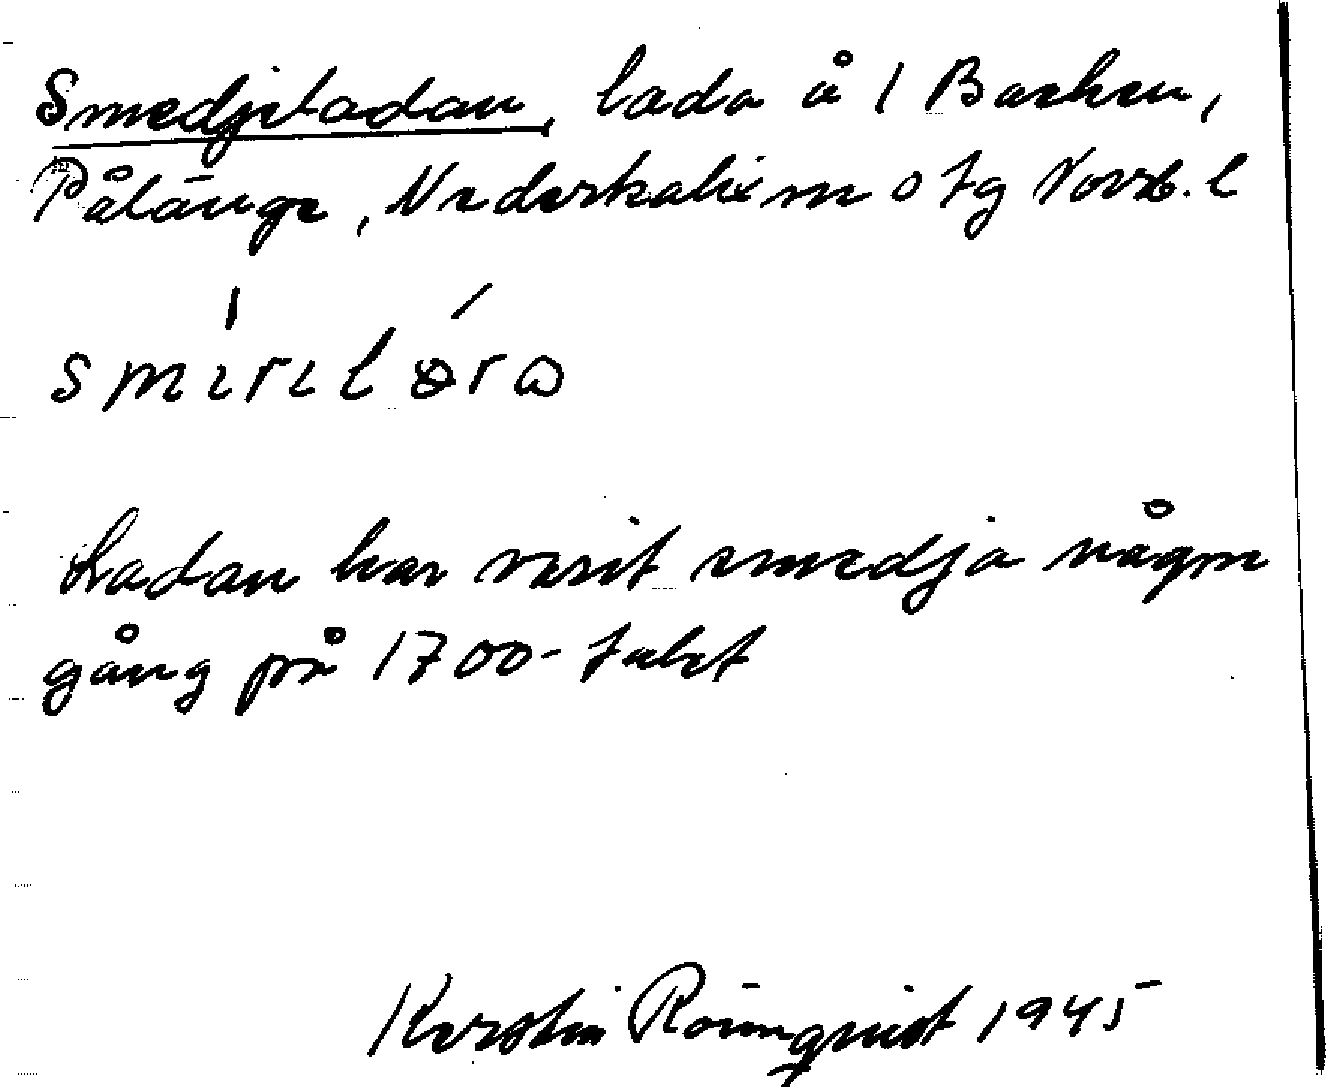 Smedjeladan, lada å 1 Backen,
Pålänge, Nederkalix sn o tg Norrb. l
Ladan har varit smedja någon
gång på 1700-talet
Kerstin Rönnqvist 1945